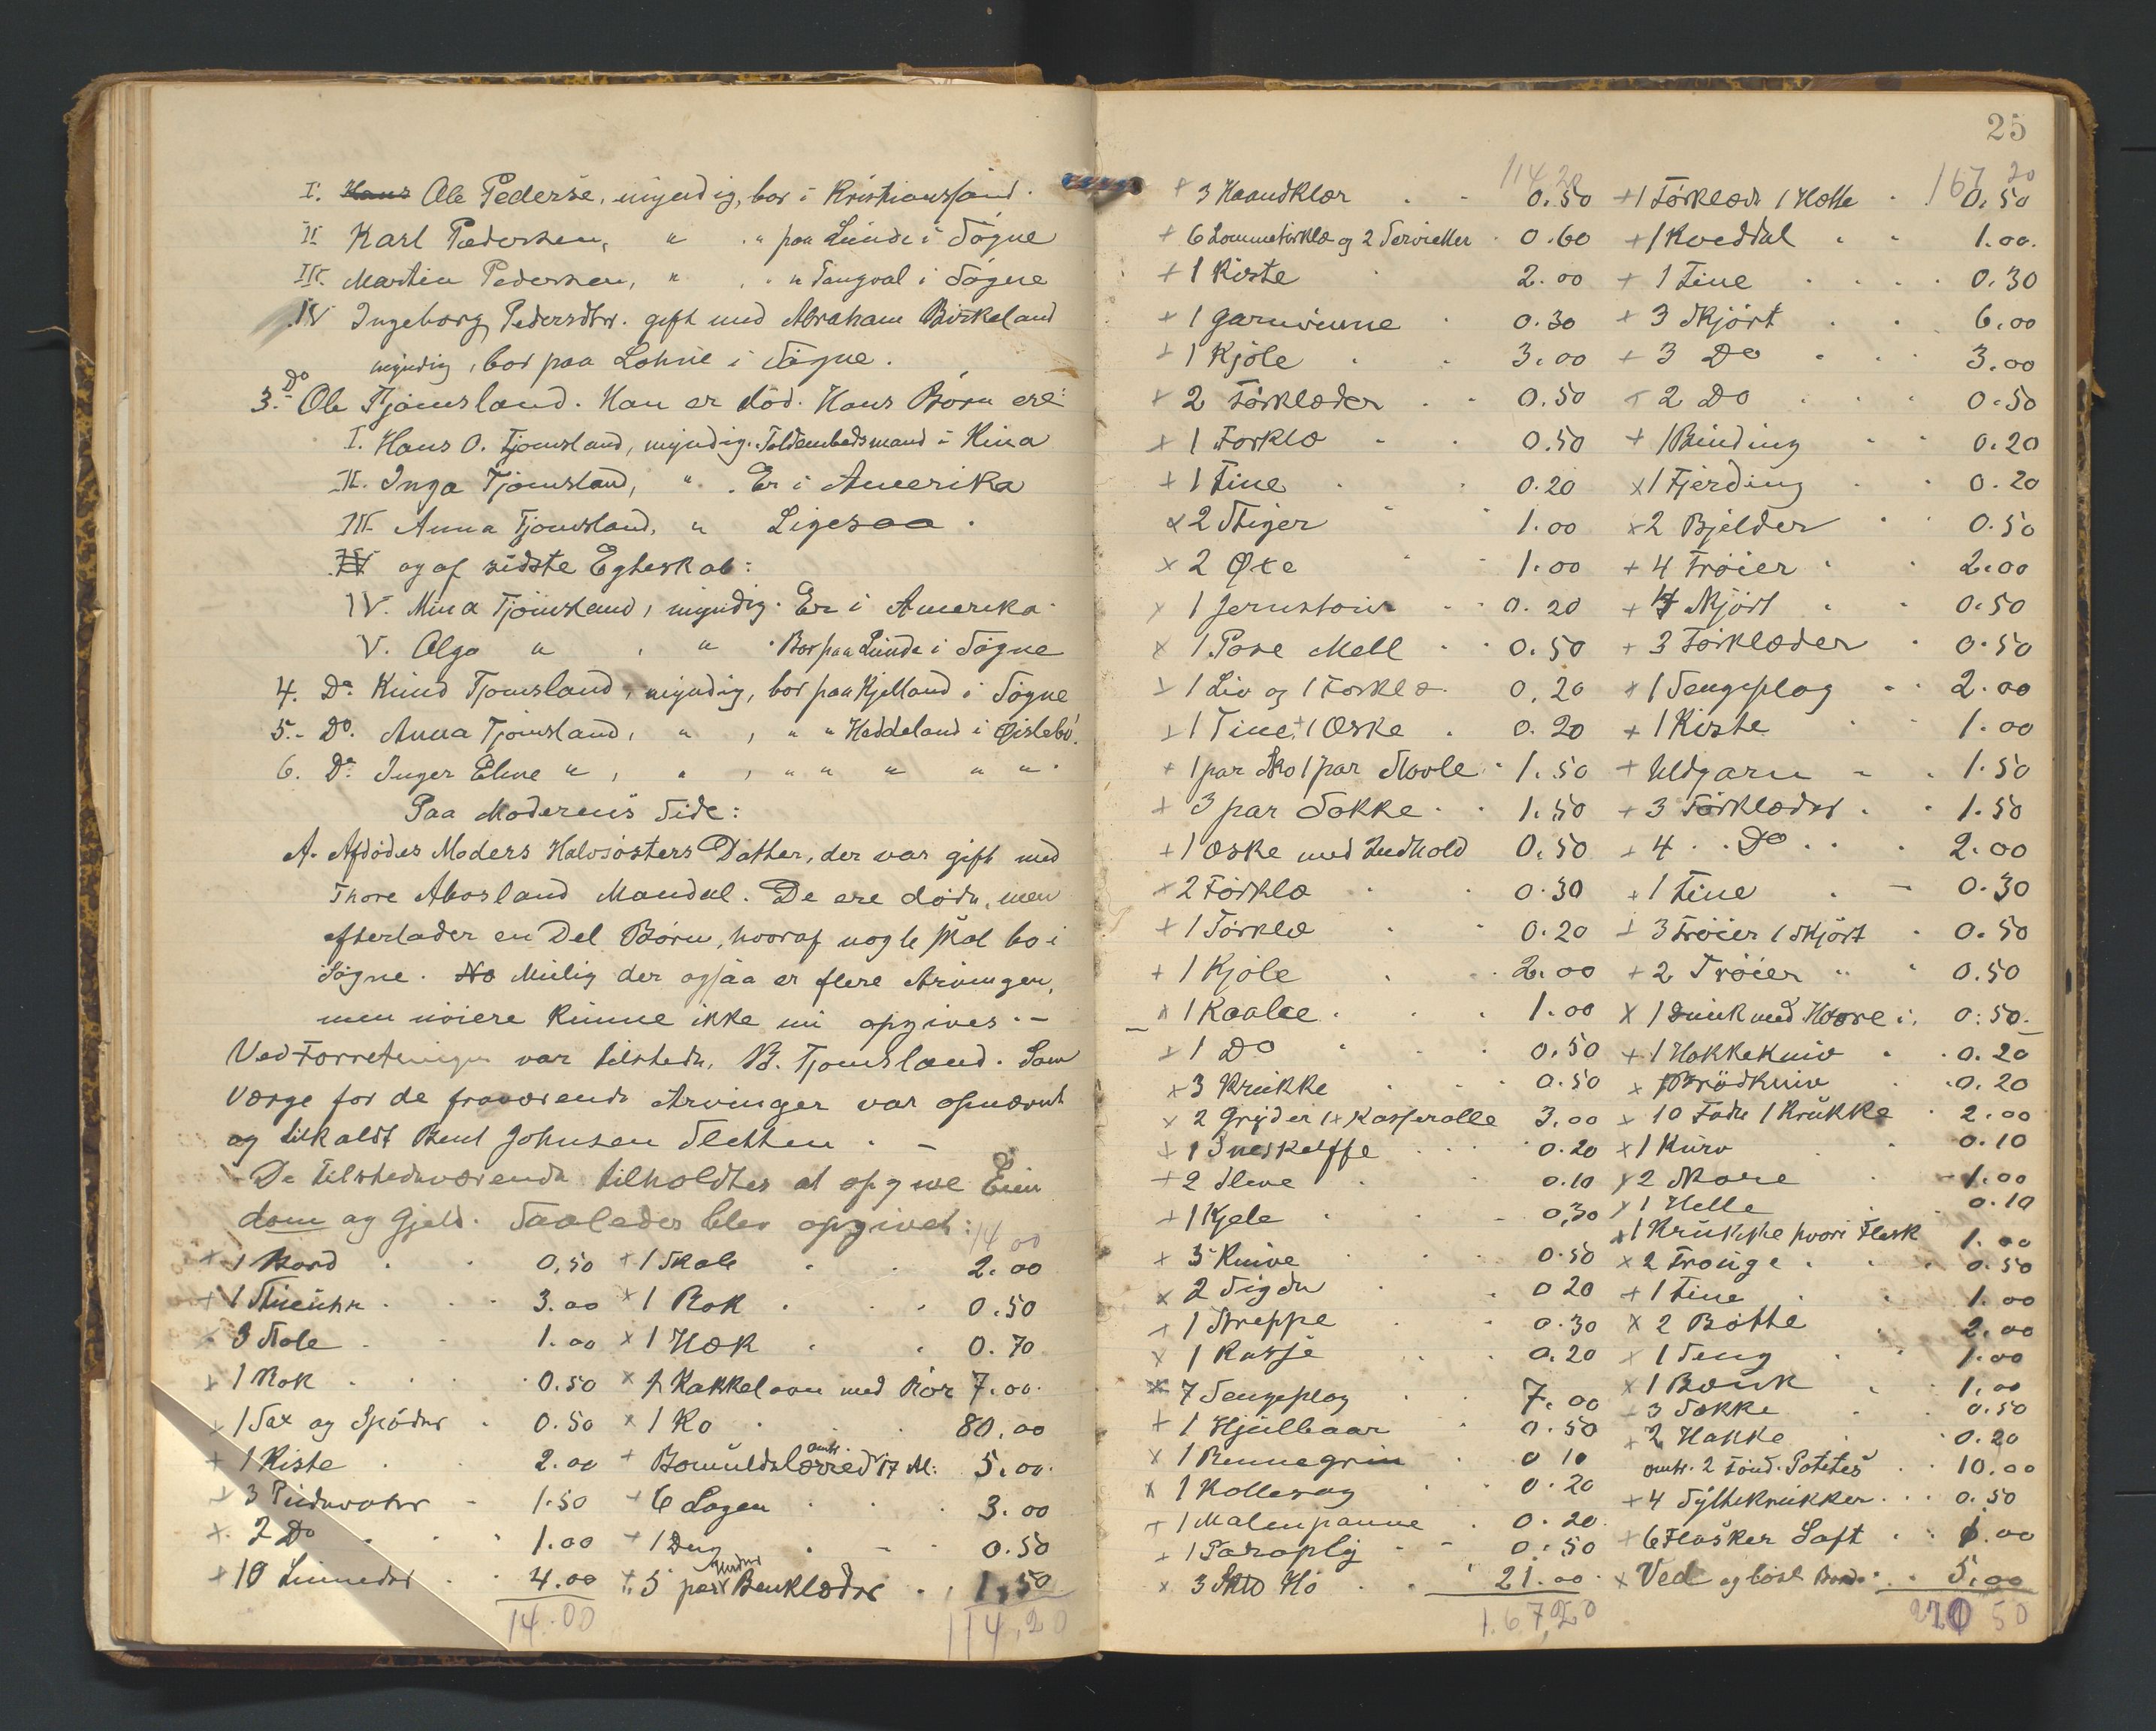 I. Hans Ole Pederse, myndig, bor i Kristianssand.
II Karl Pedersen, " . " paa Lunde i Søgne
III. Martin Pedersen, " , . " Tangval i Søgne
IV Ingeborg Pedersdtr. gift med Abraham Birkeland
myndig, bor paa Lohne i Søgne.
3. Do Ole Tjomsland. Han er død. Hans Børn ere:
I. Hans O. Tjomsland, myndig. Toldembedsmand i Kina
II. Inga Tjomsland, " . Er i Amerika
III. Anna Tjomsland, " Ligesaa.
IV og af sidste Egteskab:
IV. Mina Tjomsland, myndig. Er i Amerika.
V. Olga " , " . Bor paa Lunde i Søgne
4. Do Knud Tjomsland, myndig, bor paa Kjelland i Søgne
5. Do. Anna Tjomsland, " , " " Haddeland i Øislebø.
6. Do. Inger Eline " , " , " " " " "
Paa Moderens Side:
A. Afdødes Moders Halvsøsters Datter, der var gift med
Thore Abosland Mandal. De ere døde, men
efterlader en Del Børn, hvoraf nogle skal bo i
Søgne. No Mulig der ogsaa er flere Arvinger,
men nøiere kunne ikke nu opgives. -
Ved Forretningen var tilstede, B. Tjomsland. Som
Værge for de fraværende Arvinger var opnævnt
og tilkaldt Bent Johnsen Sletten. -
De tilstedeværende tilholdtes at opgive Eien
dom og Gjeld. Saaledes blev opgivet:
14 00
+ 1 Bord . . 0.50 + 1 Skab . . 2.00
+ 1 Stueuhr . . 3.00 x 1 Rok . . 0.50
3 Stole . . 1.00 x 1 Hæk . . 0.70
+ 1 Rok . . 0.50 x 1 Kakkelovn med Rør 7.00
+ 1 Sax og . 0.50 x 1 Ko . . 80.00
+ 1 Kiste . . 2.00 + Bomuldslærred omtr. 17 Al: 5.00
+ 3 . 1.50 + 6 Lagen . . 3.00
x 2 Do . . 1.00 + 1 Dug . . 0.50
+ 10 . . 4.00 + 5 par under Benklæder . 1.50
14.00 114,20
25
114.20 167 20
+ 3 Haandklær . . 0.50 + 1 Førklæde 1 Hætte . 0.50
+ 6 Lommetørklæ og 2 Servietter . 0.60 + 1 Kveddal . . 1.00.
+ 1 Kiste . 2.00 + 1 Tine . . . 0.30
+ 1 Garnvinne . 0.30 + 3 Skjørt . . 6.00
+ 1 Kjole . . 3.00 + 3 Do . . 3.00
+ 2 Førklæder . . 0.50 + 2 Do . . . 0.50
+ 1 Forklæ . . 0.50 + 1 Binding . . 0.20
+ 1 Tine . . 0.20 x 1 Fjerding . . 0.20
x 2 Stiger . . 1.00 x 2 Bjelder . . 0.50
x 2 Øxe . . 1.00 + 4 Trøier . . 2.00
x 1 Jernstour . . 0.20 + 4 Skjørt . . 0.50
x 1 Pose Mell . . 0.50 + 3 Førklæder . 0.50
+ 1 Liv og 1 Forklæ . 0.20 + 1 Sengeplag . . 2.00
+ 1 Tine, + 1 Æske . 0.20 + 1 Kiste . . 1.00
+ 1 par Sko 1 par Støvle . 1.50 + Uldgarn . . 1.50
+ 3 par Sokke . . 1.50 + 3 Førklæder . . 1.50
+ 1 Æske med Indhold 0.50 + 4 . . Do . . . 2.00
+ 2 Førklæ . . 0.30 + 1 Tine . . 0.30
+ 1 Førklæ . . 0.20 + 3 Trøier 1 Skjørt . 0.50
+ 1 Kjole . . 2.00 + 2 Trøier . . 0.50
x 1 Kaabe . . . 1.00 x 1 Dunk med i. 0.50.
+ 1 Do . . 0.50 + 1 Hakkekniv . . 0.20
x 3 Krukke . . 0.50 x 1 Brødkniv . . 0.20
x 2 Gryder 1 x Kasserolle 3.00 x 10 Fade 1 Krukke . 2.00
+ 1 . . 0.20 x 1 Kurv . . 0.10
+ 2 . . 0.10 x 2 . 1.00
+ 1 Kjele . . 0,30 x 1 Helle . 0.10
x 1 Krukke hvori Flesk 1.00
+ 5 Knive . . 0.50 x 2 . . 0.50
x 2 Sigde . . 0 20 + 1 Tine . . 1.00
+ 1 . . 0.30 x 2 Bøtte . 2.00
x 1 . . 0.20 x 1 Seng . . 1.00
x 7 Sengeplag . . 7.00 x 1 Bænk . 1.00
+ 1 Hjulbaar . 0.50 + 3 Sække . . 0.50
x 1 . 0 10 + 2 Hakke . 0.20
x 1 . . 0.20 omtr. 2 Tønd. Potetes . . 10.00
+ 1 . 0.20 + 4 Sylte krukker . . . 0.50
+ 1 Paraply . . 0.50 + 6 Flasker Saft . . 1.00
x 3 Hø . . 21.00 x Ved og løst . . 5.00
167,20 210 50